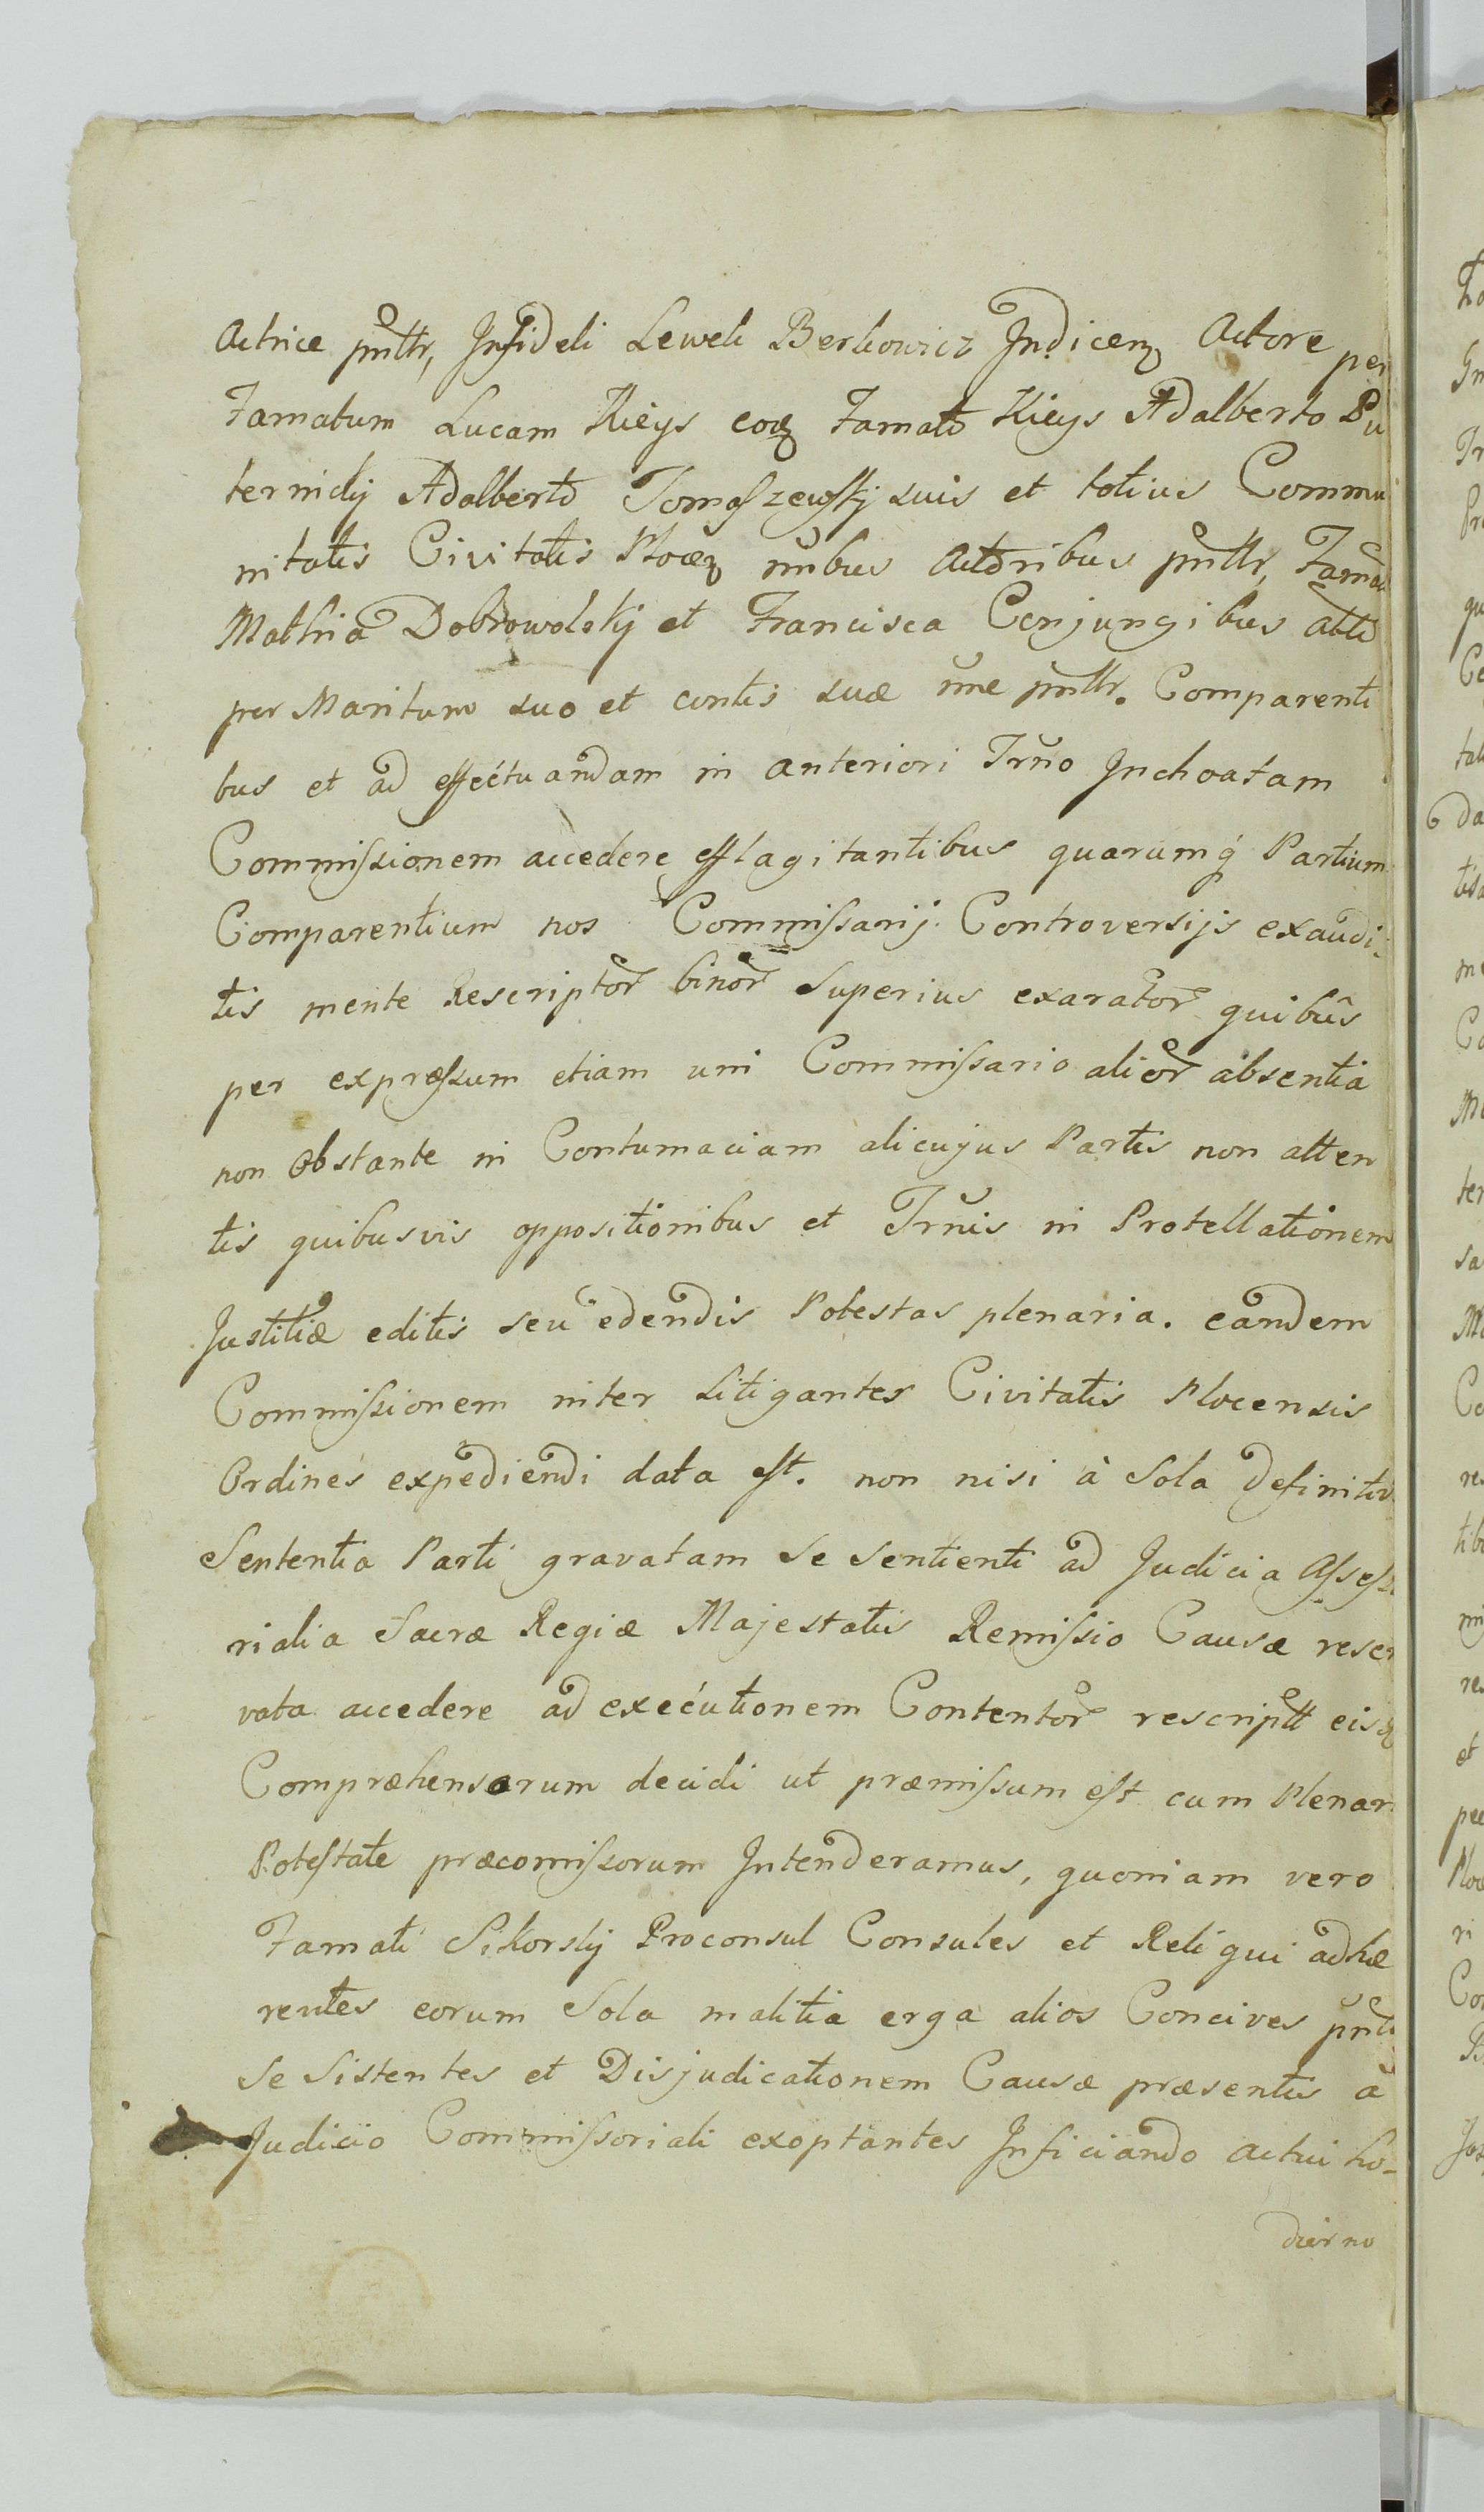 Actrice pnttr, Infideli Lewek Berkowicz Judicenq Actore per
Famatum Lucam Kieys eoq Famato Kieys Adalberto Pu
ternicky Adalberto Tomaszewsky suis et totius Commu
nitatis Civitatis Plocen nnibus Actoribus pnttr, Fama
Mathia Dobrowolsky et Francisca Conjungibus acto
per Maritum suo et contis suæ nne pnttr. Comparenti
bus et ad effectuandam in anteriori Trno Inchoatam
Commissionem accedere efflagitantibus quarumq Partium
Comparentium nos Commissarij Controversijs exaudi:
tis mente Rescriptor binor Superius exarator quibus
per expressum etiam uni Commissario alior absentia
non obstante in Contumaciam alicujus Partis non atten
tis quibusvis oppositionibus et Trnis in Protellationem
Justitiæ editis seu edendis Potestas plenaria. eandem
Commissionem inter Litigantes Civitatis Plocensis
Ordines expediendi data est. non nisi à Sola definitiv
Sententia Parti gravatam se sentienti ad Judicia Assess
rialia Sacræ Regiæ Majestatis Remissio Causæ reser
vata accedere ad executionem Contentor rescriptt eisq
Compræhensorum decidi ut præmissum est cum Plenar
Potestate præcomissorum Intenderamus, quoniam vero
Famati Sikorsky Proconsul Consules et Reliqui adhæ
rentes eorum Sola malitia erga alios Concives pnti
se Sistentes et Disjudicationem Causæ præsentis à
Judicio Commissoriali exoptantes Inficiando actui ho-
dierno